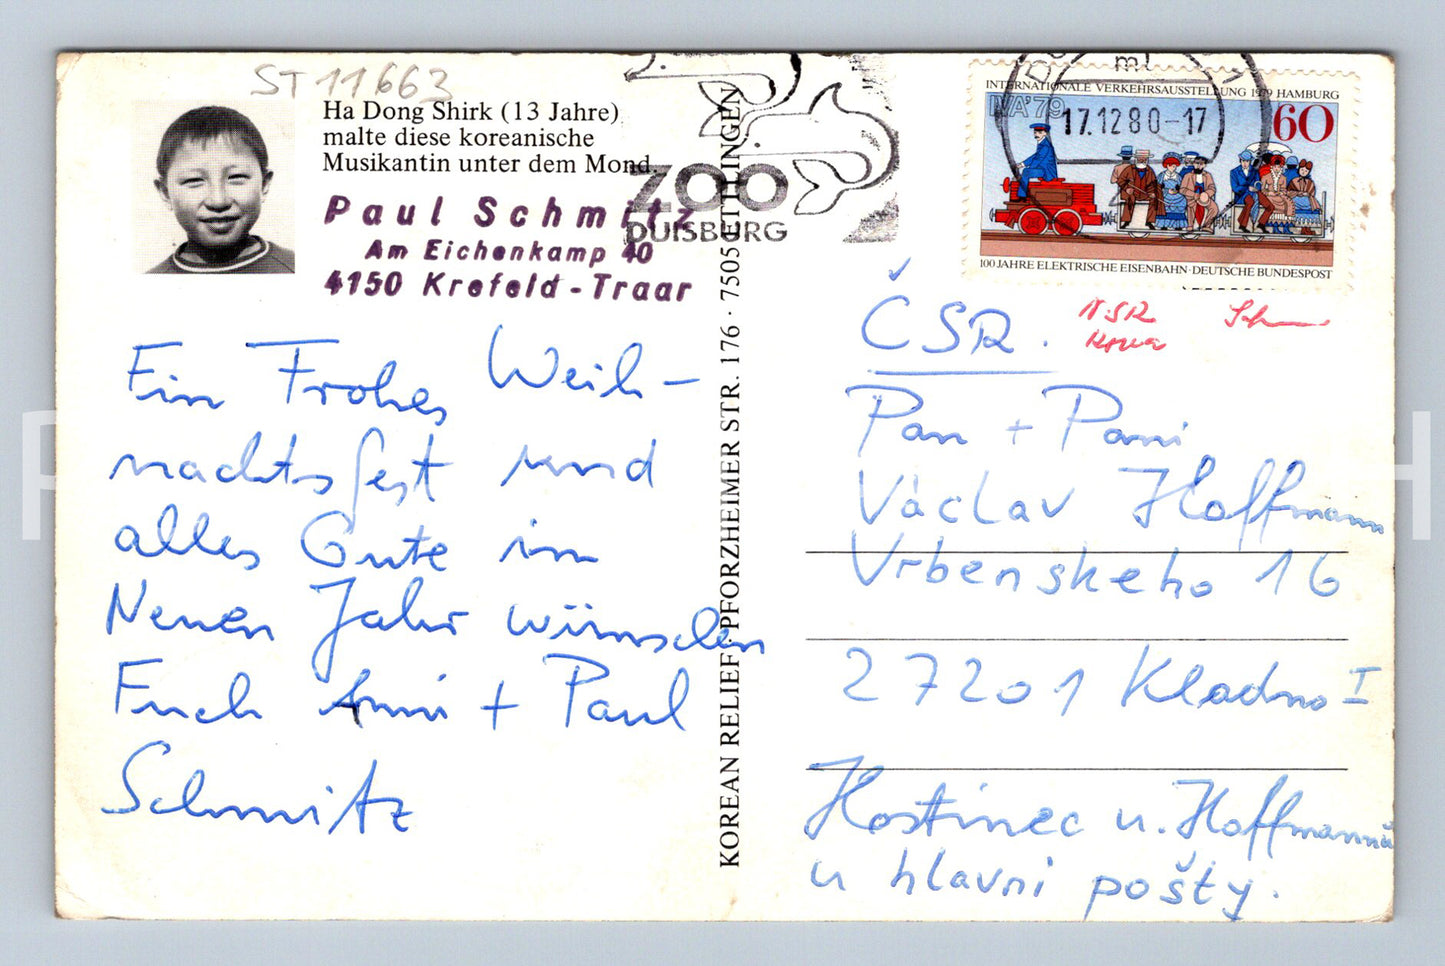 ST 11663
Ha Dong Shirk (13 Jahre)
malte diese koreanische
Musikantin unter dem Mond.
Paul Schmitz
Am Eichenkamp 40
4150 Krefeld-Traar
Ein Frohes Weih-
nachtsfest und
alles Gute im
Neuen Jahr wünschen
Euch Anni + Paul
Schmitz
KOREAN RELIEF · PFORZHEIMER STR. 176 · 7505 ETTLINGEN
ZOO
DUISBURG
17.12.80-17
INTERNATIONALE VERKEHRSAUSSTELLUNG 1979 HAMBURG
IVA'79
60
100 JAHRE ELEKTRISCHE EISENBAHN · DEUTSCHE BUNDESPOST
ČSR.
Pan + Pani
Václav Hoffmann
Vrbenskeho 16
27201 Kladno I
Hostinec u. Hoffmannů
u hlavni pošty.